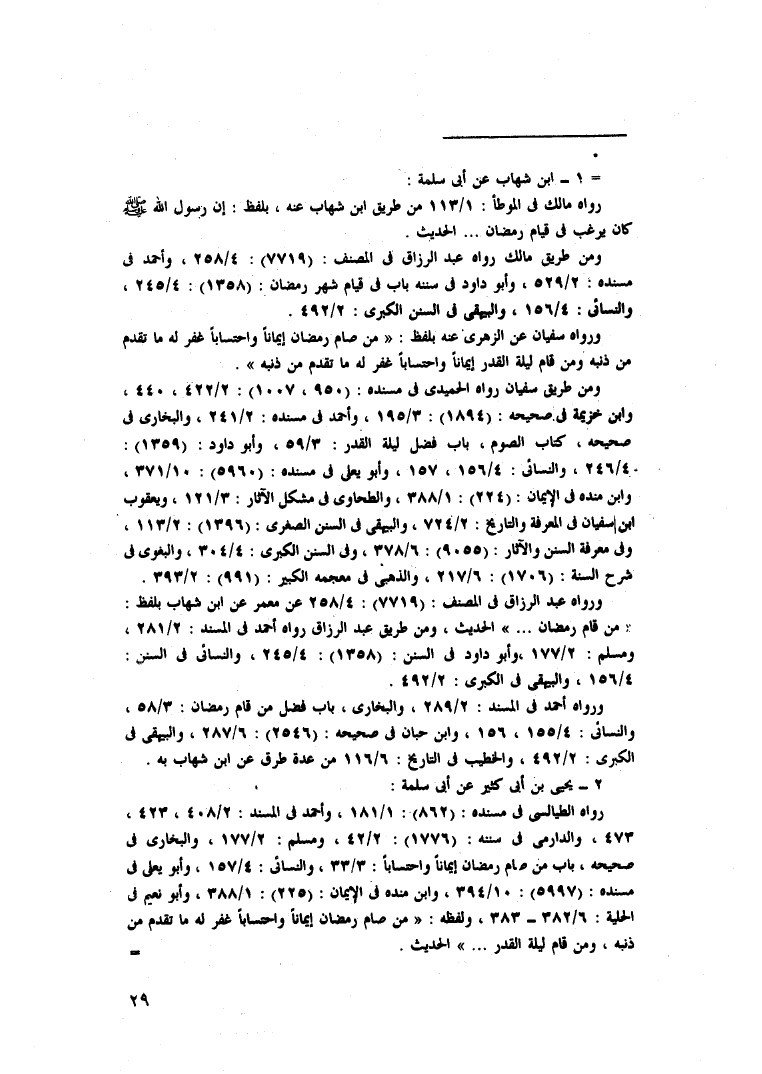 = ١ ــ ابن شهاب عن أبى سلمة :
رواه مالك فى الموطأ : ١١٣/١ من طريق ابن شهاب عنه ، بلفظ : إن رسول الله ﷺ
كان يرغب فى قيام رمضان ... الحديث .
ومن طريق مالك رواه عبد الرزاق فى المصنف : (٧٧١٩) : ٢٥٨/٤ ، وأحمد فى
مسنده : ٥٢٩/٢ ، وأبو داود فى سننه باب فى قيام شهر رمضان : (١٣٥٨) : ٢٤٥/٤ ،
والنسائى : ١٥٦/٤ ، والبيهقى فى السنن الكبرى : ٤٩٢/٢ .
ورواه سفيان عن الزهرى عنه بلفظ : « من صام رمضان إيماناً واحتساباً غفر له ما تقدم
من ذنبه ومن قام ليلة القدر إيماناً واحتساباً غفر له ما تقدم من ذنبه » .
ومن طريق سفيان رواه الحميدى فى مسنده : (٩٥٠ ، ١٠٠٧) : ٤٢٢/٢ ، ٤٤٠ ،
وابن خزيمة فى صحيحه : (١٨٩٤) : ١٩٥/٣ ، وأحمد فى مسنده : ٢٤١/٢ ، والبخارى فى
صحيحه ، كتاب الصوم ، باب فضل ليلة القدر : ٥٩/٣ ، وأبو داود : (١٣٥٩) :
٢٤٦/٤ ، والنسائى : ١٥٦/٤ ، ١٥٧ ، وأبو يعلى فى مسنده : (٥٩٦٠) : ٣٧١/١٠ ،
وابن منده فى الإيمان : (٢٢٤) : ٣٨٨/١ ، والطحاوى فى مشكل الآثار : ١٢١/٣ ، ويعقوب
ابن سفيان فى المعرفة والتاريخ : ٧٢٤/٢ ، والبيهقى فى السنن الصغرى : (١٣٩٦) : ١١٣/٢ ،
وفى معرفة السنن والآثار : (٩٠٥٥) : ٣٧٨/٦ ، وفى السنن الكبرى : ٣٠٤/٤ ، والبغوى فى
شرح السنة : (١٧٠٦) : ٢١٧/٦ ، والذهبى فى معجمه الكبير : (٩٩١) : ٣٩٣/٢ .
ورواه عبد الرزاق فى المصنف : (٧٧١٩) : ٢٥٨/٤ عن معمر عن ابن شهاب بلفظ :
« من قام رمضان ... » الحديث ، ومن طريق عبد الرزاق رواه أحمد فى المسند : ٢٨١/٢ ،
ومسلم : ١٧٧/٢ ،وأبو داود فى السنن : (١٣٥٨) : ٢٤٥/٤ ، والنسائى فى السنن :
١٥٦/٤ ، والبيهقى فى الكبرى : ٤٩٢/٢ .
ورواه أحمد فى المسند : ٢٨٩/٢ ، والبخارى ، باب فضل من قام رمضان : ٥٨/٣ ،
والنسائى : ١٥٥/٤ ، ١٥٦ ، وابن حبان فى صحيحه : (٢٥٤٦) : ٢٨٧/٦ ، والبيهقى فى
الكبرى : ٤٩٢/٢ ، والخطيب فى التاريخ : ١١٦/٦ من عدة طرق عن ابن شهاب به .
٢ ــ يحيى بن أبى كثير عن أبى سلمة :
رواه الطيالسى فى مسنده : (٨٦٢) : ١٨١/١ ، وأحمد فى المسند : ٤٠٨/٢ ، ٤٢٣ ،
٤٧٣ ، والدارمى فى سننه : (١٧٧٦) : ٤٢/٢ ، ومسلم : ١٧٧/٢ ، والبخارى فى
صحيحه ، باب من صام رمضان إيماناً واحتساباً : ٣٣/٣ ، والنسائى : ١٥٧/٤ ، وأبو يعلى فى
مسنده : (٥٩٩٧) : ٣٩٤/١٠ ، وابن منده فى الإيمان : (٢٢٥) : ٣٨٨/١ ، وأبو نعيم فى
الحلية : ٣٨٢/٦ ــ ٣٨٣ ، ولفظه : « من صام رمضان إيماناً واحتساباً غفر له ما تقدم من
ذنبه ، ومن قام ليلة القدر ... » الحديث . =
٢٩